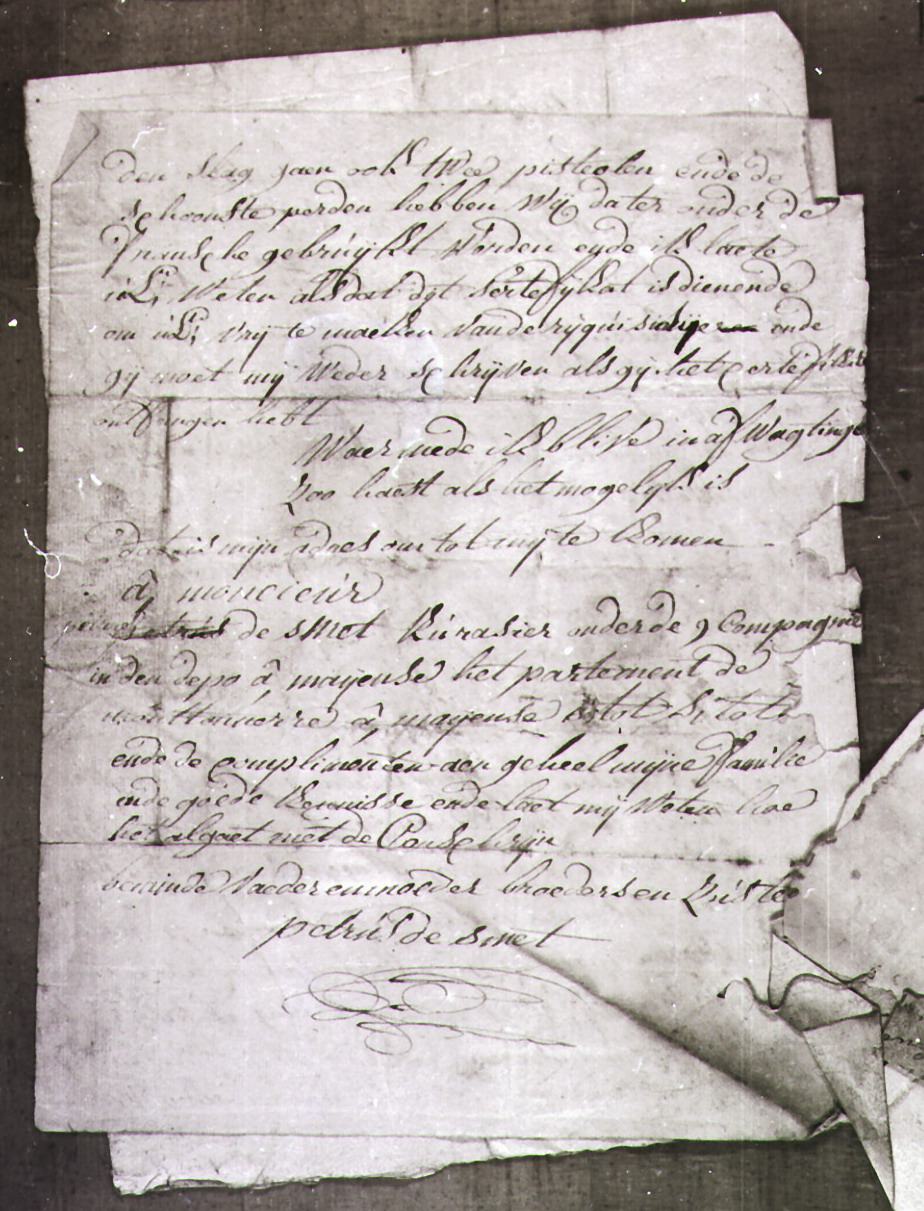 den slag jaen ook twee pisteolen ende de
schoonste perden hebben wij dater onder de
franssche gebruijkt worden ende ik laete
ul: weten als dat dyt sertefijkat is dienende
om ul: vrij te maeken van de ryquisisije ende
gij moet mij weder schrijven als gij het certefikat
ontfangen hebt
Waer mede ik blive in afwagtinge
zoo haest als het mogelijk is
dat is mijn adres om tot mij te komen
â moncieúr
petrús de smet kúrasier onder de 9 compagnie
in den depo â mayense het partement de
mont tonnerre â mayense
ende de complimenten aen geheel mijne familie
ende goede kennisse ende laet mij weten hoe
het al gaet met de Conschrijn
beminde vaeder en moeder broeders en zúster
petrús de smet